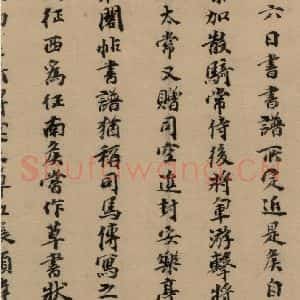 六日書書譜所定近是矣自
加散騎常侍後將軍游擊將
太常又贈司空進封安樂亭
閣帖書譜猶稱司馬傳寫之
征西為征南矣嘗作草書狀
Shufawang.Cn